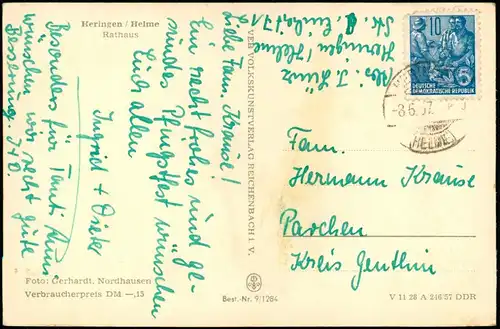 Heringen / Helme
Rathaus
Liebe Fam. Krause!
Ein recht frohes und ge-
sundes Pfingstfest wünschen
Euch allen
Ingrid + Dieter
Besonders für Tanti
wünschen wir recht gute
Besserung.
Foto: Gerhardt, Nordhausen
Verbraucherpreis DM —,15
VEB VOLKSKUNSTVERLAG REICHENBACH I. V.
Best.-Nr. 9/1284
Abs. J.
Heringen/Helme
Str. d. Einheit 71
10
5
DEUTSCHE
DEMOKRATISCHE REPUBLIK
-8.6.57.
(HELME)
Fam.
Hermann Krause
Parchen
Kreis Genthin
V 11 28 A 246/57 DDR